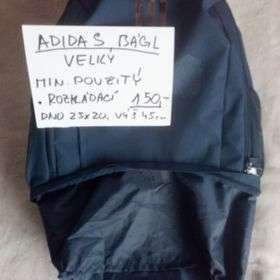 ADIDAS, BÁGL
VELKÝ
MIN. POUŽITÝ
• ROZKLÁDACÍ 150,-
DNO 25x20, VÝŠ 45,-